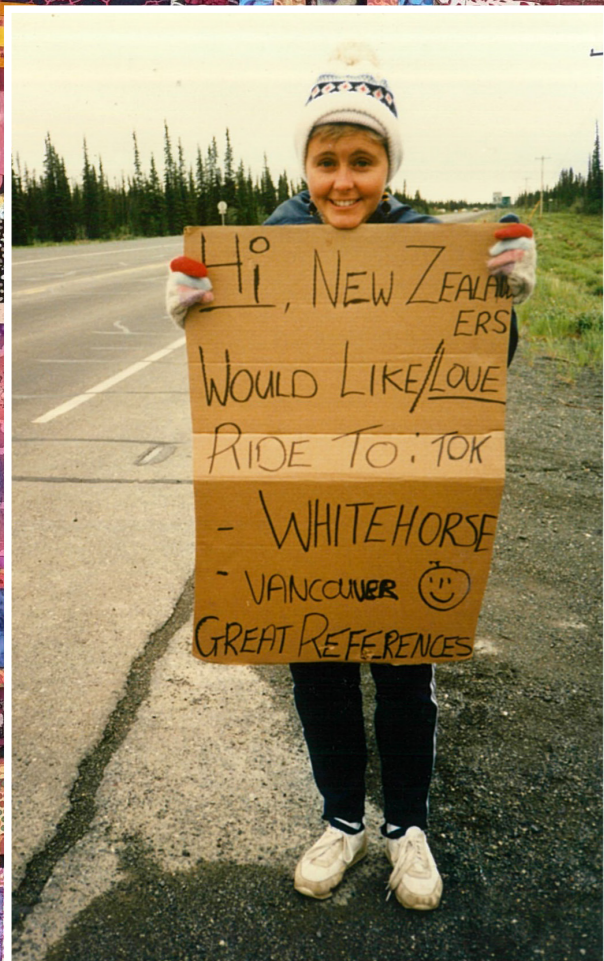 Hi, NEW ZEALAND
ERS
WOULD LIKE/LOVE
RIDE TO: TOK
- WHITEHORSE
- VANCOUVER
GREAT REFERENCES